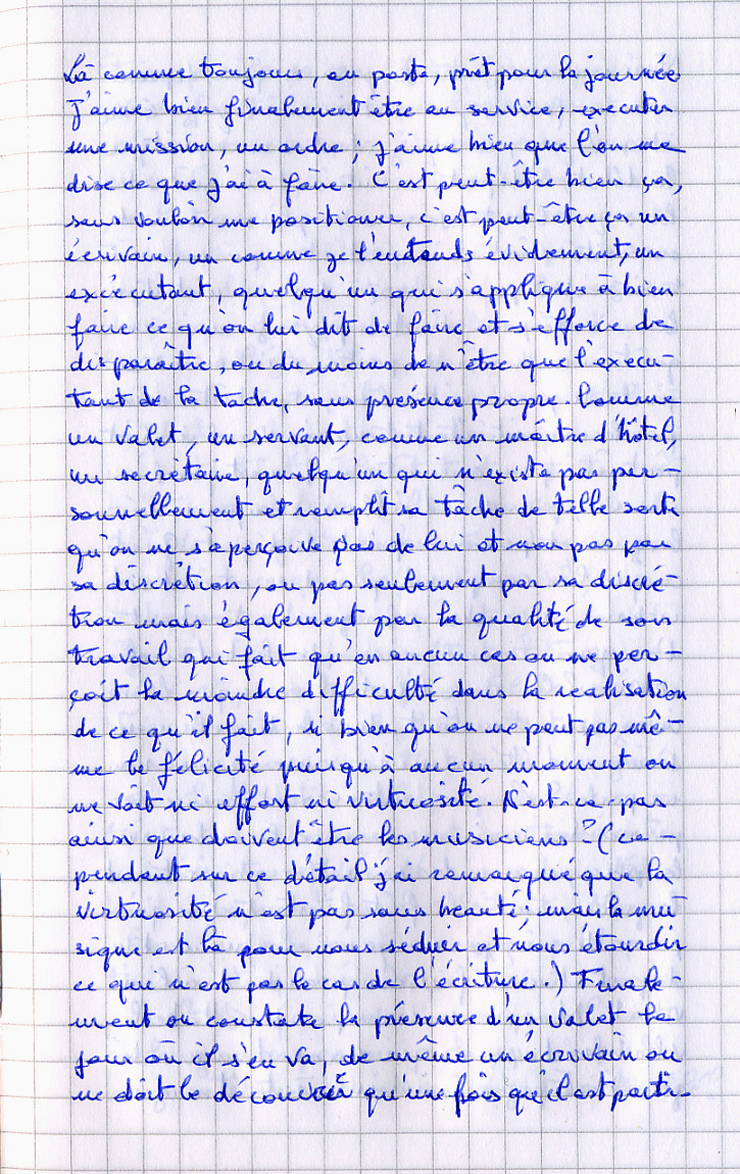 Là comme toujours, au poste, prêt pour la journée
J'aime bien finalement être au service, executer
une mission, un ordre ; j'aime bien que l'on me
dise ce que j'ai à faire. C'est peut-être bien ça,
sans vouloir me positionner, c'est peut-être ça un
écrivain, un comme je l'entends évidemment, un
exécutant, quelqu'un qui s'applique à bien
faire ce qu'on lui dit de faire et s'efforce de
disparaître, ou du moins de n'être que l'execu-
tant de la tache, sans présence propre. Comme
un valet, un servant, comme un maître d'hôtel,
un secrétaire, quelqu'un qui n'existe pas per-
sonnellement et remplit sa tâche de telle sorte
qu'on ne s'aperçoive pas de lui et non pas par
sa discrétion, ou pas seulement par sa discré-
tion mais également par la qualité de son
travail qui fait qu'en aucun cas on ne per-
çoit la moindre difficulté dans la realisation
de ce qu'il fait, si bien qu'on ne peut pas mê-
me le félicité puisqu'à aucun moment on
ne voit ni effort ni virtuosité. N'est-ce-pas
ainsi que doivent être les musiciens ? (ce-
pendant sur ce détail j'ai remarqué que la
virtuosité n'est pas sans beauté ; mais la mu
sique est là pour nous séduir et nous étourdir
ce qui n'est pas le cas de l'écriture.) Finale-
ment on constate la présence d'un valet le
jour où il s'en va, de même un écrivain on
ne doit le découvrir qu'une fois qu'il est parti.